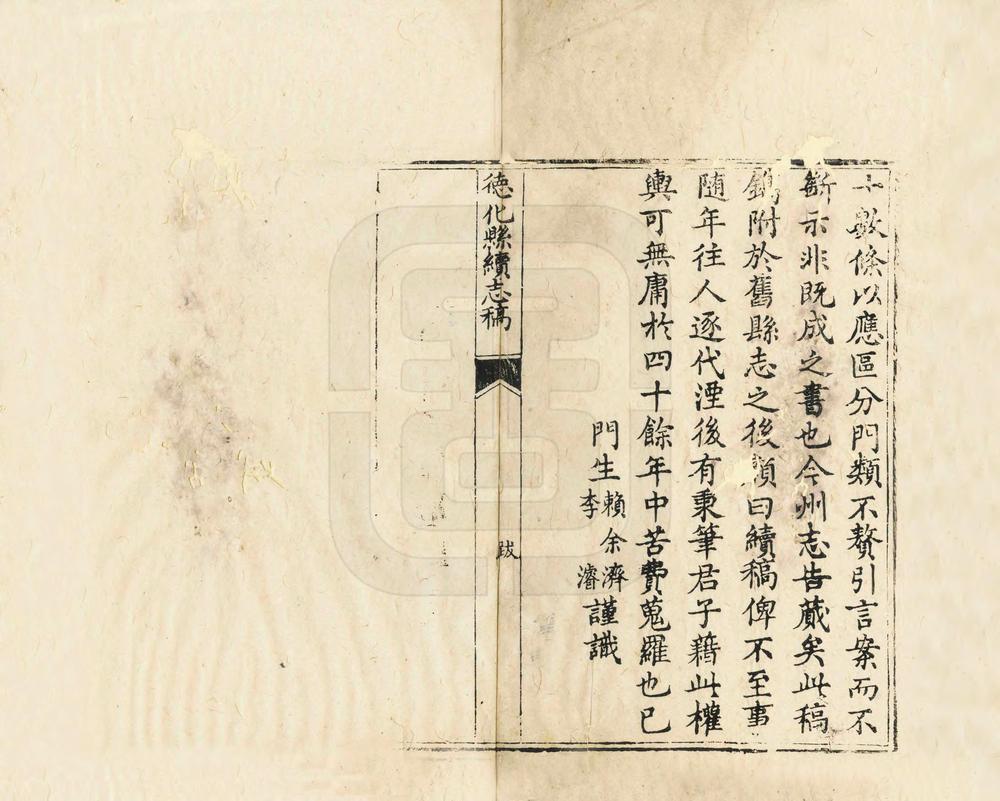 十數條以應區分門類不贅引言案而不
斷示非既成之書也今州志告蕆矣此稿
鐫附於舊縣志之後顏曰續稿俾不至事
隨年往人逐代湮後有秉筆君子藉此權
輿可無庸於四十餘年中苦費蒐羅也已
門生賴余濟李濬謹識
德化縣續志稿
跋